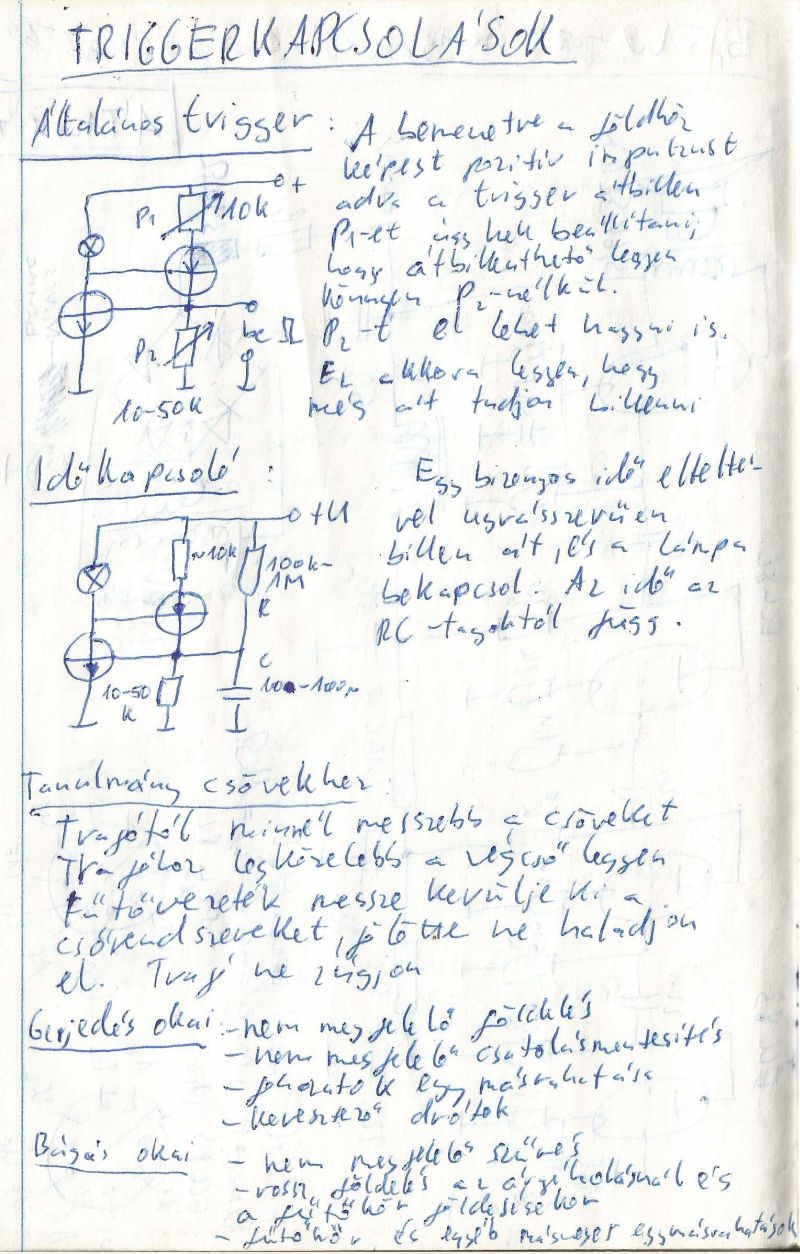 TRIGGERKAPCSOLÁSOK
Általános trigger:
A bemenetre a földhöz
képest pozitív impulzust
adva a trigger átbillen
P1-et úgy kell beállítani,
hogy átbillenthető legyen
könnyen P2-nélkül.
P2-t el lehet hagyni is.
Ez akkora legyen, hogy
még át tudjon billenni
+
P1 10k
be
P2
10-50k
Időkapcsoló:
Egy bizonyos idő eltelté-
vel ugrásszerűen
billen át, és a lámpa
bekapcsol. Az idő az
RC-tagoktól függ.
+U
~10k
100k-
1M
R
C
10-50
k
100-100µ
Tanulmány csövekhez:
Trafótól minnél messzebb a csöveket
Trafóhoz legközelebb a végcső legyen
Fűtővezeték messze kerülje ki a
csőrendszereket, fölötte ne haladjon
el. Trafó ne zúgjon
Gerjedés okai: -nem megfelelő földelés
- nem megfelelő csatolásmentesítés
- fokozatok egymásrahatása
- keresztező drótok
Búgás okai - nem megfelelő szűrés
- rossz földelés az árnyékolásnál és
a fűtőkör földelésekor
- fűtőkör és egyéb mágneses egymásrahatások